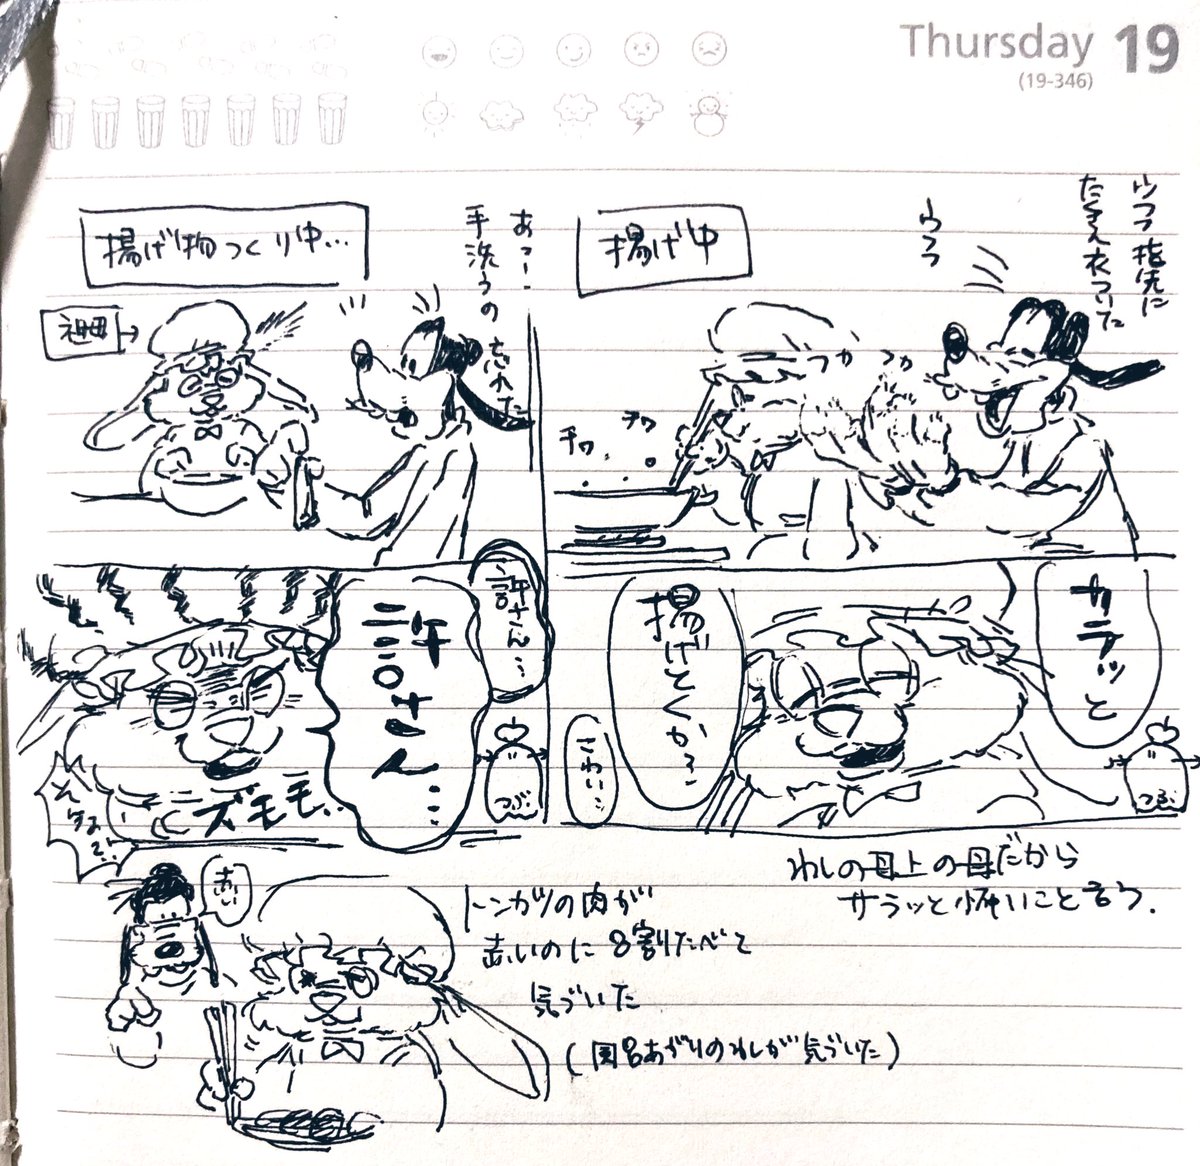 Thursday 19
(19-346)
揚げ物つくり中…
祖母→
あっー
手洗うの忘れた
揚げ中
ウフフ
ウフフ指先に
たくさん衣ついた
チワ
チワ
つか
つか
許さん…
許さん…
ズモモ
カラッと
揚げとくか?
こわい…
つぶ
わしの母上の母だから
サラッと怖いこと言う.
え
赤い
トンカツの肉が
赤いのに8割たべて
気づいた
(風呂あがりのわしが気づいた)